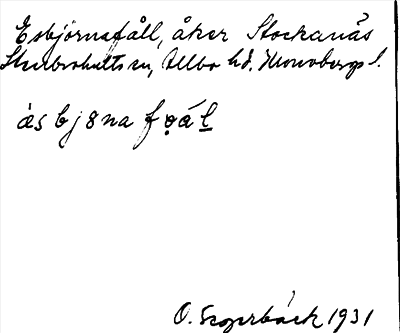 Esbjörnafåll, åker Stockanäs
Stenbrohults sn, Allbo hd. Kronobergs l.
ás bj8na fo̤á l̲
O. Segerbäck 1931